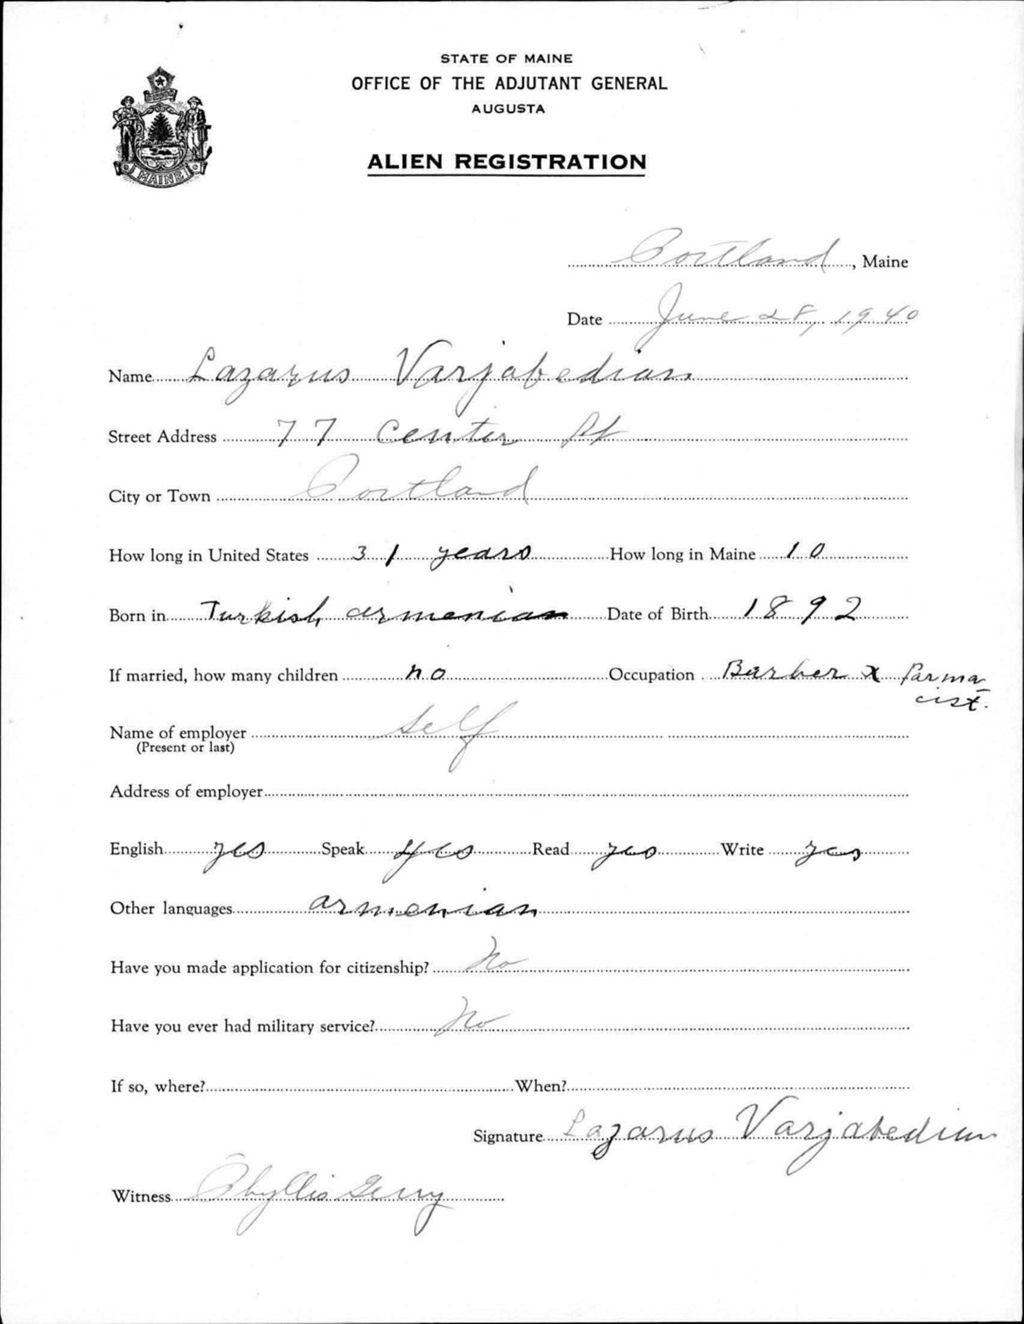 STATE OF MAINE
OFFICE OF THE ADJUTANT GENERAL
AUGUSTA
ALIEN REGISTRATION
MAINE
Portland, Maine
Date June 28, 1940
Name Lazarus Varjabedian
Street Address 77 Center St
City or Town Portland
How long in United States 31 years How long in Maine 10
Born in Turkish armenian Date of Birth 1892
If married, how many children no Occupation Barber x Parma
cist.
Name of employer self
(Present or last)
Address of employer
English yes Speak yes Read yes Write yes
Other languages armenian
Have you made application for citizenship? No
Have you ever had military service? No
If so, where? When?
Signature Lazarus Varjabedian
Witness Phyllis Gerry